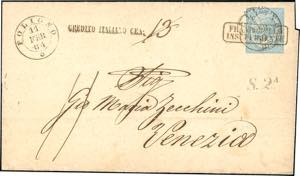 FOLIGNO
11
FEB
64
CREDITO ITALIANO CEN.
13
FRANCOBOLLO
INSUFFICIENTE
S. 2ª
Maria Zecchini
Venezia